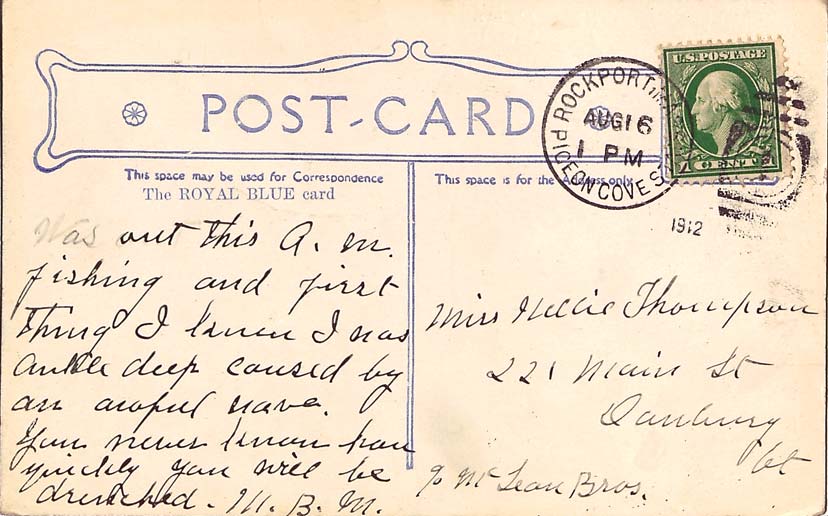 U.S. POSTAGE
1 CENT 1
ROCKPORT, M
AUG 16
1 PM
PIGEON COVE S
1912
POST-CARD
This space may be used for Correspondence
The ROYAL BLUE card
This space is for the Address only
Was out this A. M.
fishing and first
thing I knew I was
ankle deep caused by
an awful wave.
You never know how
quickly you will be
drenched. M. B. M.
Miss Nellie Thompson
221 Main St
Danbury
Ct
c/o McLean Bros.